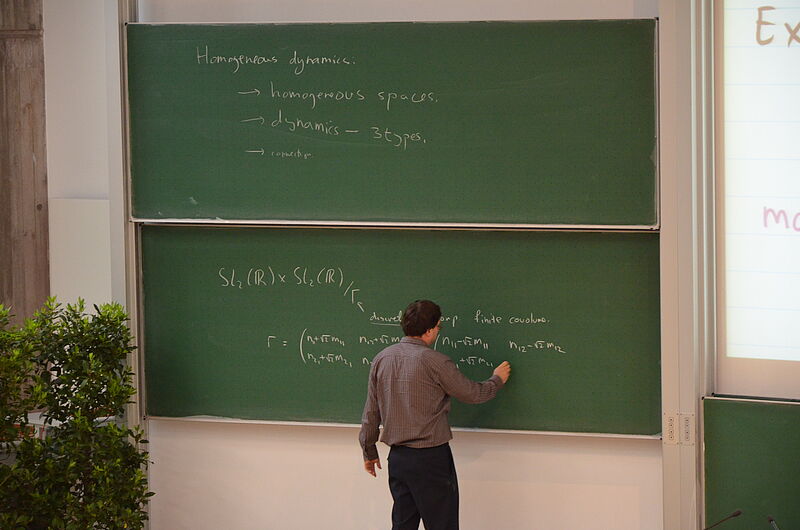 Homogeneous dynamics.
→ homogeneous spaces.
→ dynamics – 3 types.
→ connection.
SL₂(ℝ) × SL₂(ℝ)/Γ
discrete finite covolume.
Γ = (n₁₁+√2 m₁₁ n₁₂+√2 m n₁₁-√2 m₁₁ n₁₂-√2 m₁₂
n₂₁+√2 m₂₁ n +√2 m₂₁
Ex
mo